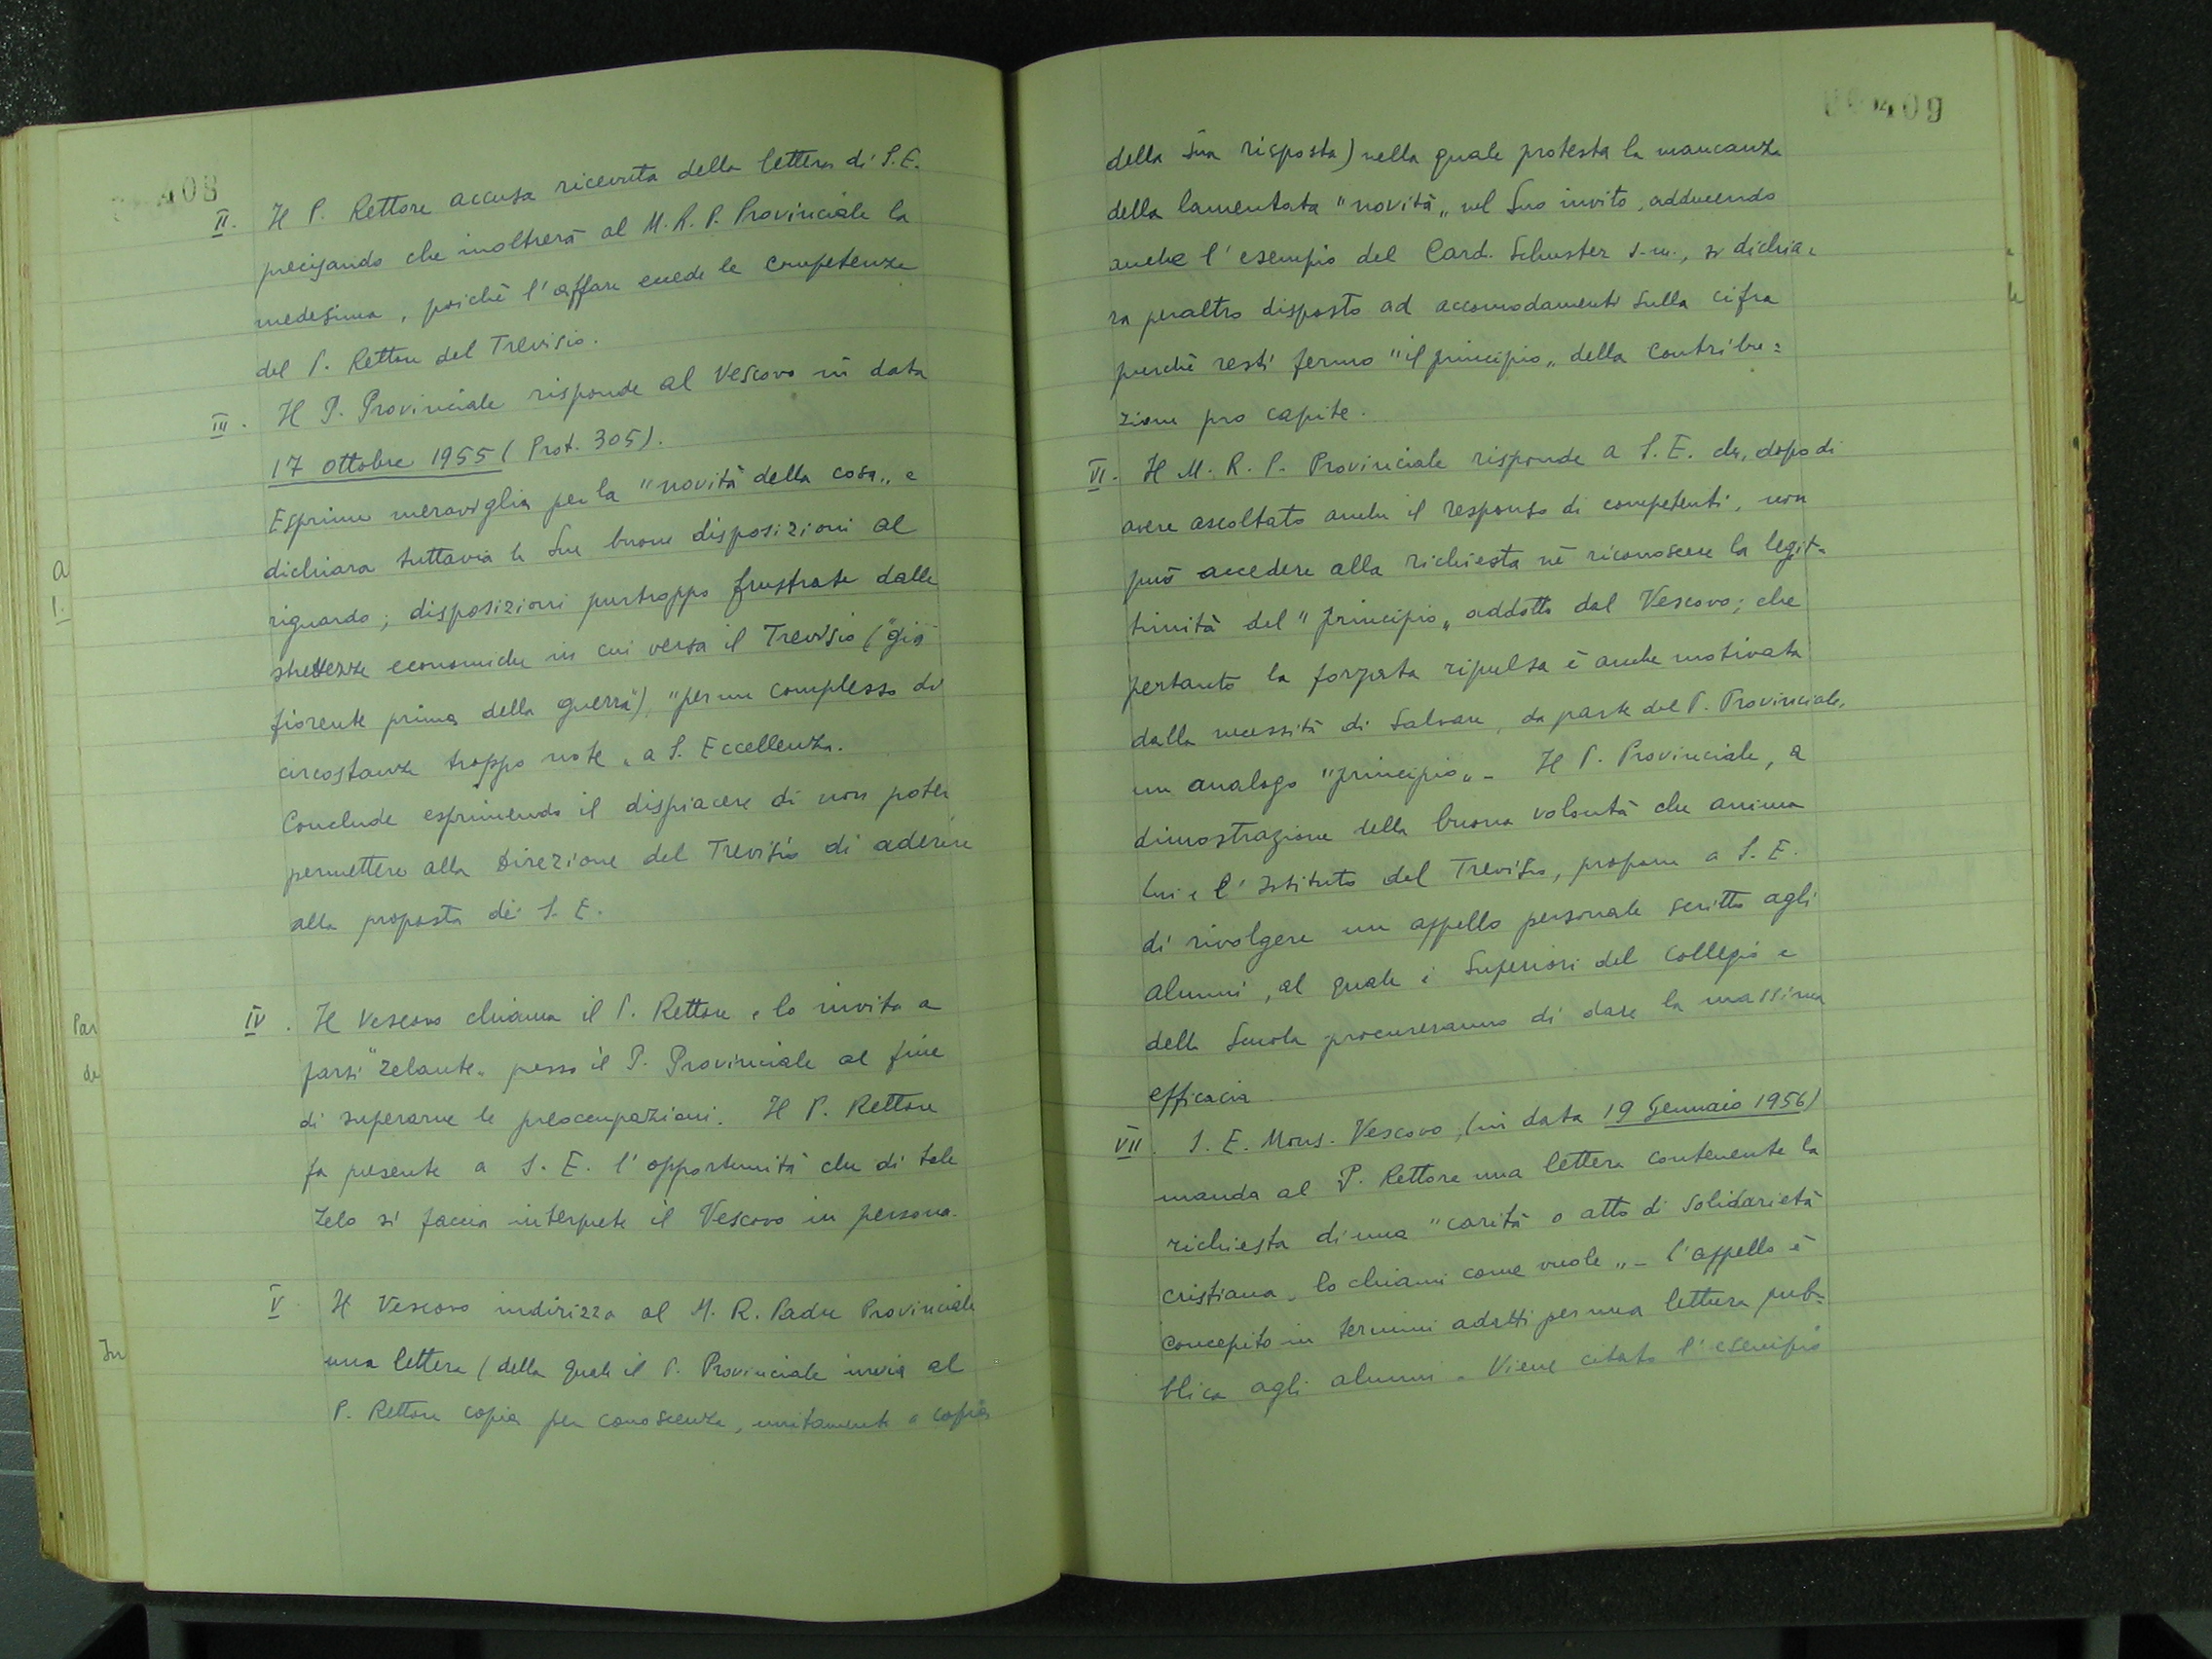 408
II. Il P. Rettore accusa ricevuta della lettera di S.E.
precisando che inoltrerà al M.R.P. Provinciale la
medesima, poichè l'affare eccede le competenze
del P. Rettore del Trevisio.
III. Il P. Provinciale risponde al Vescovo in data
17 ottobre 1955 (Prot. 305).
Esprime meraviglia per la "novità della cosa„ e
dichiara tuttavia le Sue buone disposizioni al
riguardo; disposizioni purtroppo frustrate dalle
strettezze economiche in cui versa il Trevisio ("già
fiorente prima della guerra") "per un complesso di
circostanze troppo note„ a S. Eccellenza.
Conclude esprimendo il dispiacere di non poter
permettere alla Direzione del Trevisio di aderire
alla proposta di S. E.
IV. Il Vescovo chiama il P. Rettore e lo invita a
farsi "zelante„ presso il P. Provinciale al fine
di superarne le preoccupazioni. Il P. Rettore
fa presente a S. E. l'opportunità che di tale
zelo si faccia interprete il Vescovo in persona.
V Il Vescovo indirizza al M. R. Padre Provinciale
una lettera (della quale il P. Provinciale invia al
P. Rettore copia per conoscenza, unitamente a copia
a
I.
Par
de
In
409
della sua risposta) nella quale protesta la mancanza
della lamentata "novità„ nel Suo invito, adducendo
anche l'esempio del Card. Schuster s.m., si dichia=
ra peraltro disposto ad accomodamenti sulla cifra
perchè resti fermo "il principio„ della contribu=
zione pro capite.
VI. Il M. R. P. Provinciale risponde a S. E. che, dopo di
avere ascoltato anche il responso di competenti, non
può accedere alla richiesta nè riconoscere la legit=
timità del "principio„ addotto dal Vescovo; che
pertanto la forzata ripulsa è anche motivata
dalla necessità di salvare, da parte del P. Provinciale,
un analogo "principio„ - Il P. Provinciale, a
dimostrazione della buona volontà che anima
lui e l'Istituto del Trevisio, propone a S. E.
di rivolgere un appello personale scritto agli
alunni, al quale i Superiori del Collegio e
della Scuola procureranno di dare la massima
efficacia.
VII. S. E. Mons. Vescovo, (in data 19 Gennaio 1956)
manda al P. Rettore una lettera contenente la
richiesta di una "carità o atto di solidarietà
cristiana, lo chiami come vuole„ - l'appello è
concepito in termini adatti per una lettura pub=
blica agli alunni. Viene citato l'esempio